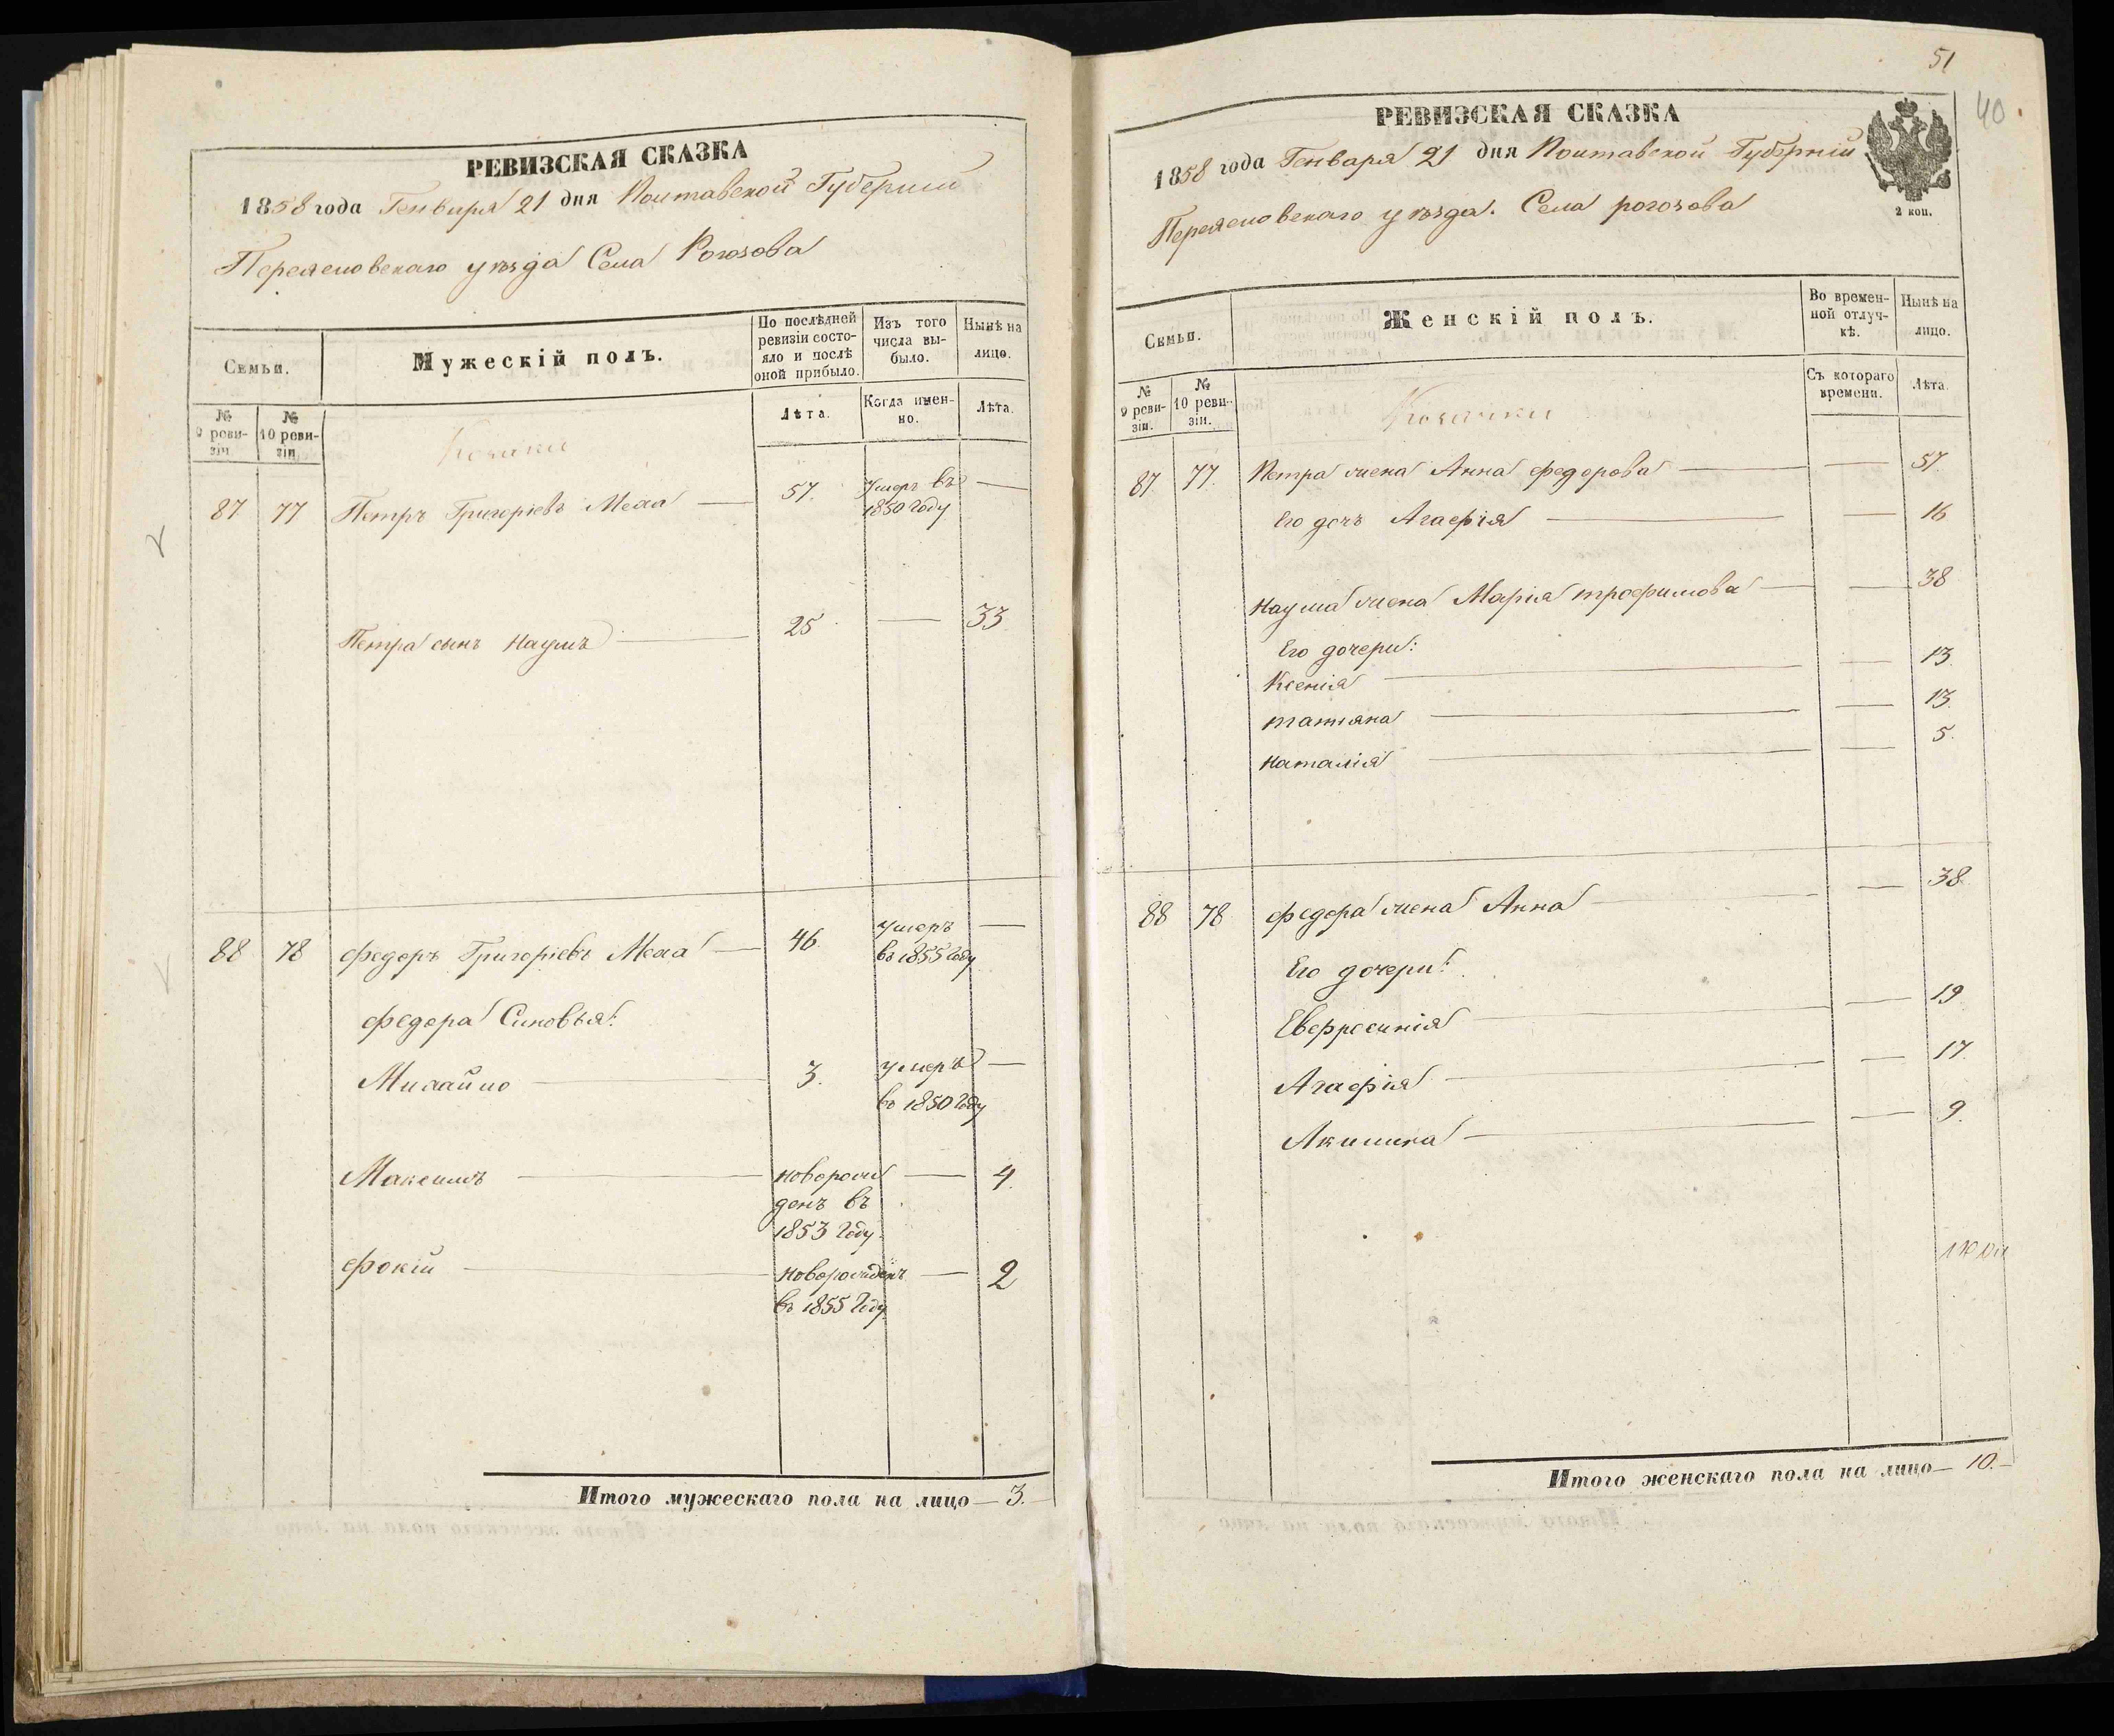 РЕВИЗСКАЯ СКАЗКА
1858 года Генваря 21 дня Полтавской Губернии
Переяславскаго уезда Села Рогозова
Семьи.
Мужескій полъ.
По послѣдней ревизіи состояло и послѣ оной прибыло.
Изъ того числа выбыло.
Нынѣ на лицо.
№ 9 ревизіи
№ 10 ревизіи
Козаки
Лѣта.
Когда именно.
Лѣта.
87 77 Петръ Григоріевъ Меха — 57. Умеръ въ —
1850 году
Петра сынъ Наумъ — 25 — 33
88 78 Федоръ Григоріевъ Меха — 46. умеръ —
въ 1855 году
Федора Синовья:
Михайло — 3. умеръ —
въ 1850 году
Максимъ — новорож — 4.
денъ въ
1853 году.
Фокій — новорожденъ — 2
въ 1855 году.
Итого мужескаго пола на лицо — 3. —
51
40
РЕВИЗСКАЯ СКАЗКА
1858 года Генваря 21 дня Полтавской Губернии
Переясловскаго уѣзда. Села рогозова
2 коп.
Семьи.
Женскій полъ.
Во временной отлучкѣ.
Нынѣ на лицо.
№ 9 ревизіи.
№ 10 ревизіи.
Козачки
Съ котораго времени.
Лѣта.
87. 77. Петра жена Анна федорова — — 57.
Его дочь Агафія — — 16
Наума жена Марія трофимова — — 38
Его дочери:
Ксенія — — 13.
татіана — — 13.
наталія — — 5.
88 78 федора жена Анна — — 38
Его дочери:
Евфросинія — — 19
Агафія — — 17.
Акилина — — 9.
Итого женскаго пола на лицо — 10. —